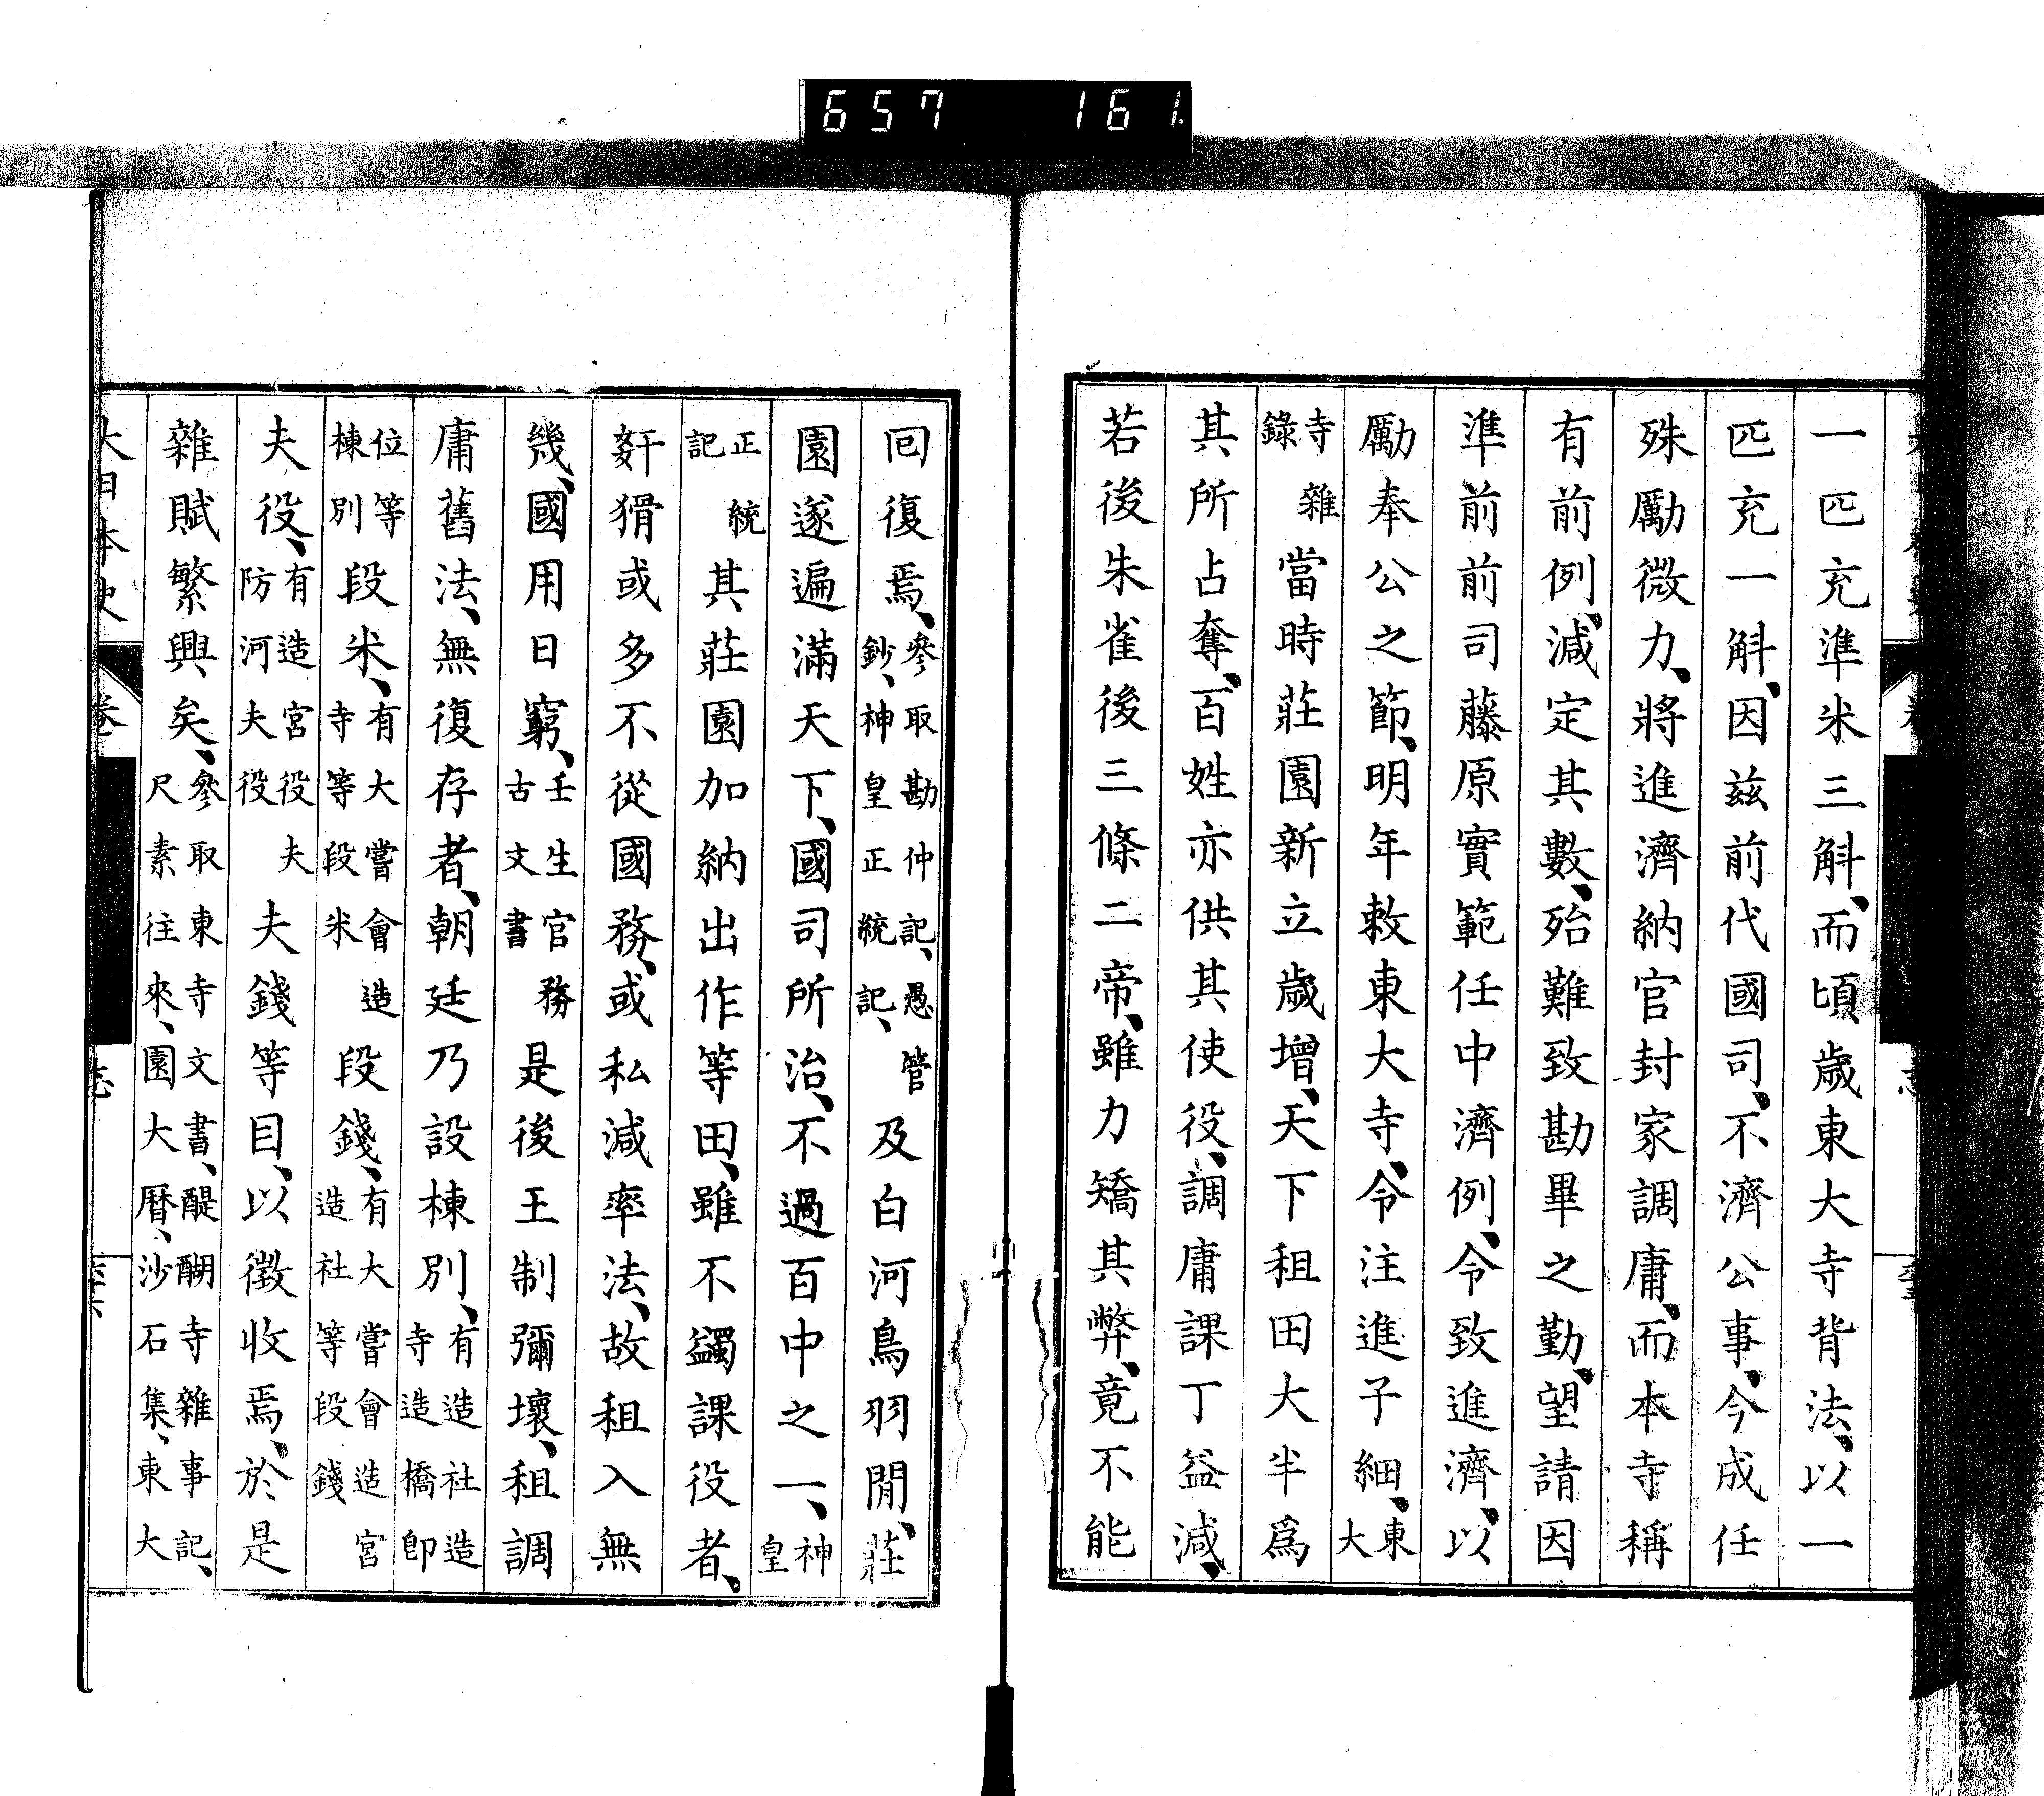 657 161
一匹充準米三斛、而頃歲東大寺背法、以一
匹充一斛、因茲前代國司、不濟公事、今成任
殊勵微力、將進濟納官封家調庸、而本寺稱
有前例、減定其數、殆難致勘畢之勤、望請因
準前前司藤原實範任中濟例、令致進濟、以
勵奉公之節、明年敕東大寺、令注進子細、東大
寺雜錄當時莊園新立歲增、天下租田大半爲
其所占奪、百姓亦供其使役、調庸課丁益減、
若後朱雀後三條二帝、雖力矯其弊、竟不能
回復焉、參取勘仲記、愚管鈔、神皇正統記、及白河鳥羽閒、莊
園遂遍滿天下、國司所治、不過百中之一、神皇
正統記其莊園加納出作等田、雖不蠲課役者、
姧猾或多不從國務、或私減率法、故租入無
幾、國用日窮、壬生官務古文書是後王制彌壞、租調
庸舊法、無復存者、朝廷乃設棟別、有造社造寺造橋卽
位等棟別段米、有大嘗會造寺等段米段錢、有大嘗會造宮造社等段錢
夫役、有造宮役夫防河夫役夫錢等目、以徵收焉、於是
雜賦繁興矣、參取東寺文書、醍醐寺雜事記、尺素往來、園大曆、沙石集、東大
大日本史 卷 志